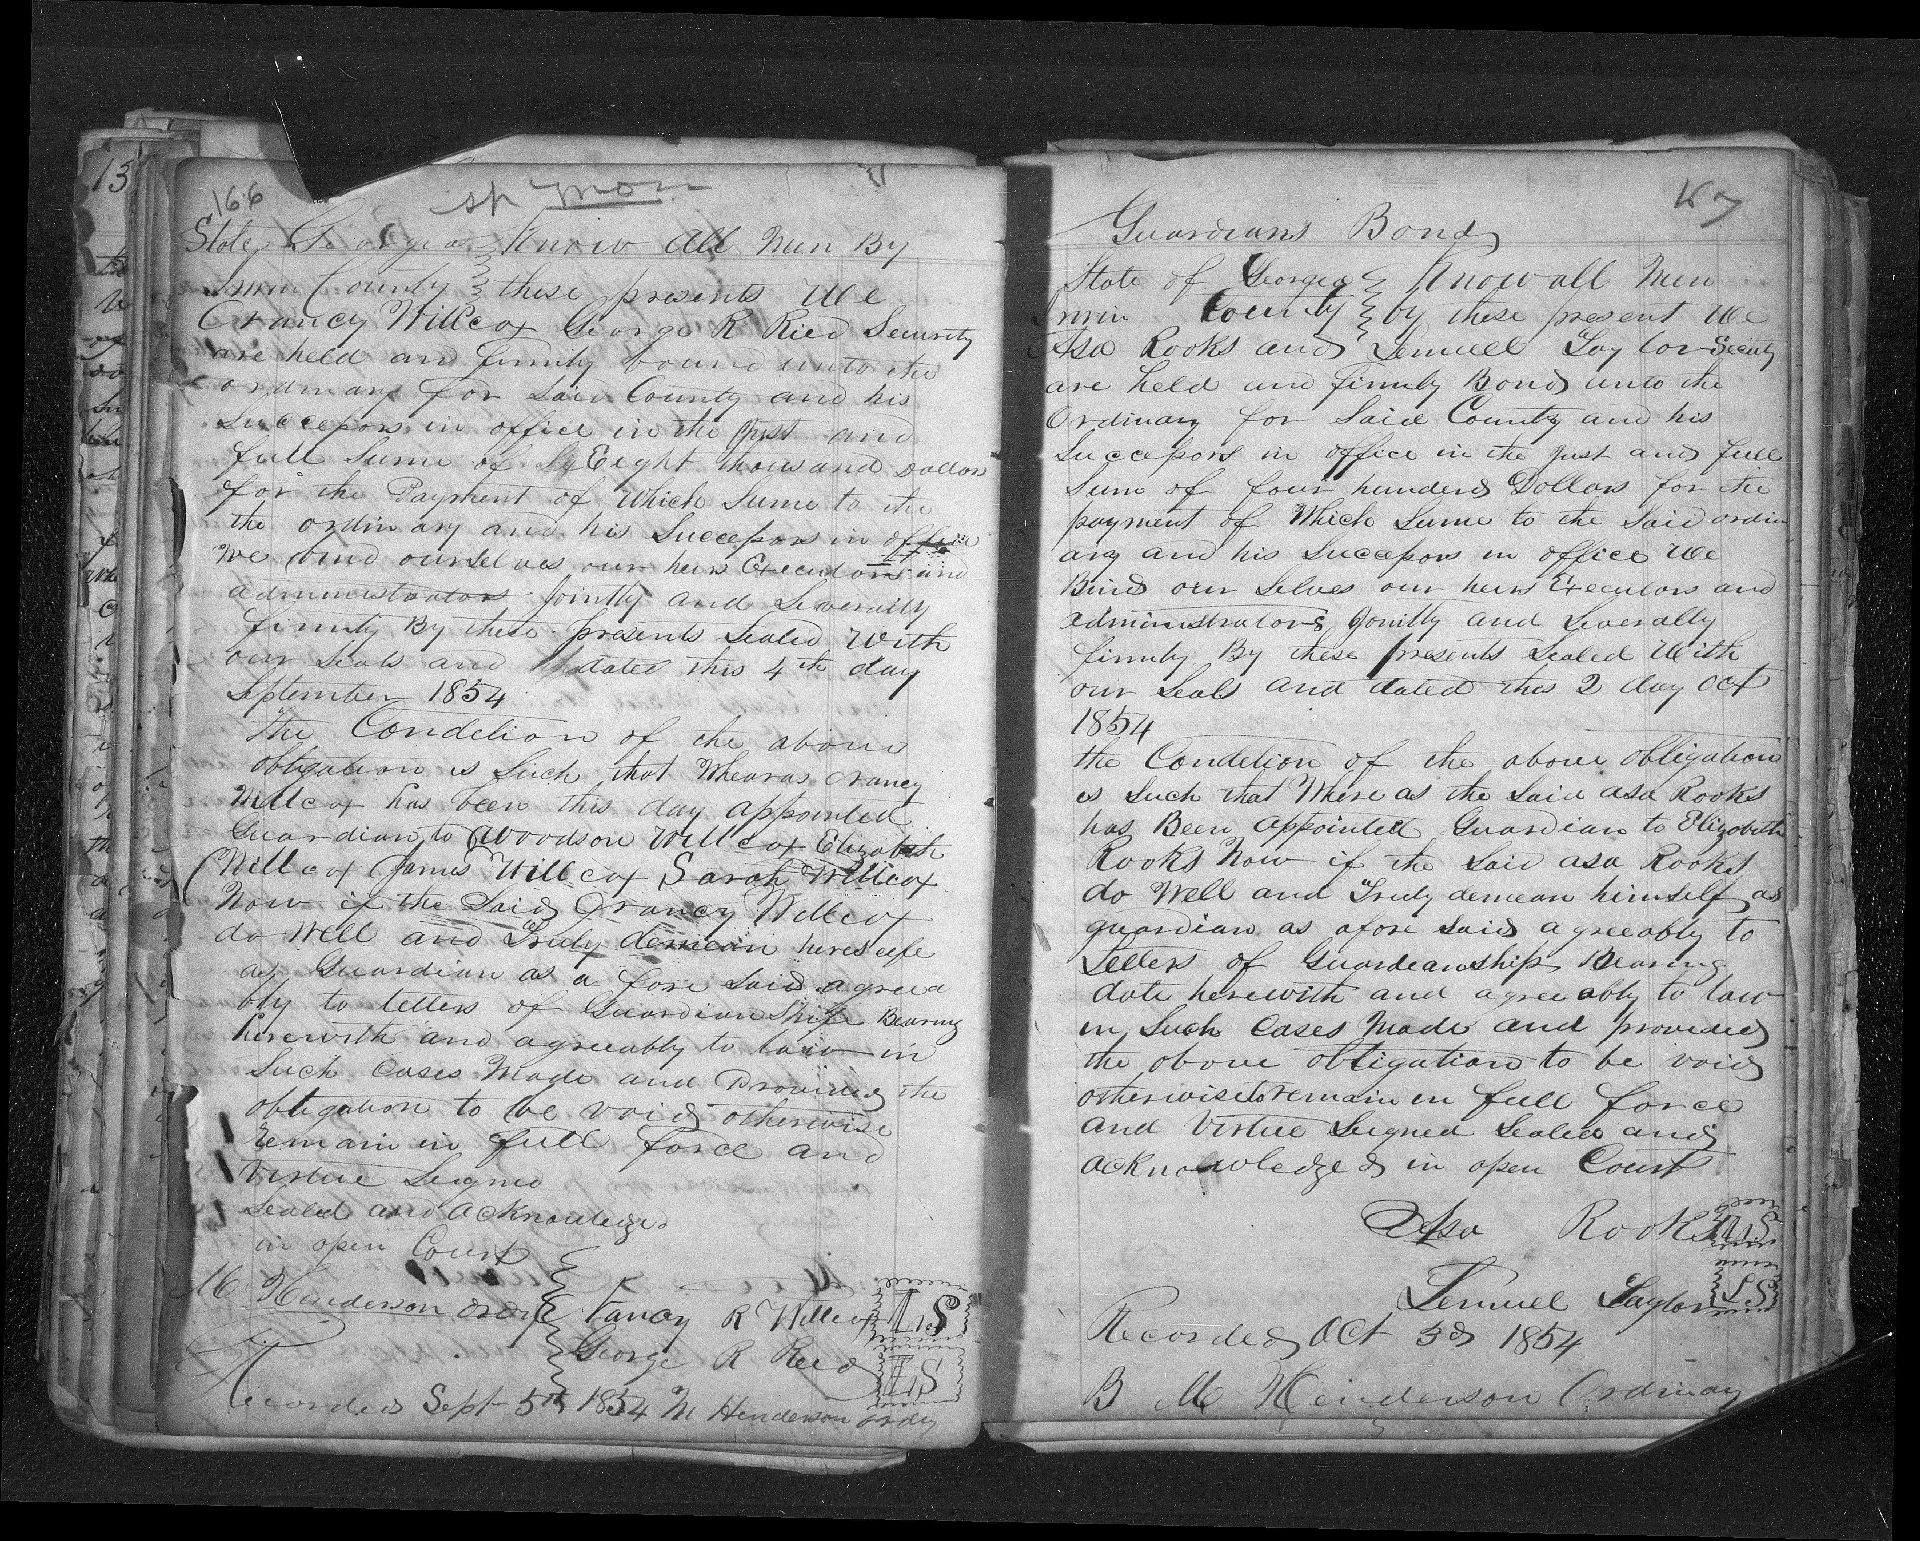 166
State of Georgia Know All Men By
Irwin County these presents We
Crancy Willcox George R Ried Security
are held and firmly bound unto the
ordinary for Said County and his
Successors in office in the just and
full Sume of Eight thousand Dollars
for the Payment of Which Sume to the
the ordinary and his Successors in office
We bind ourselves our heirs Executors and
administrators Jointly and Severally
firmly By these presents Sealed With
our Seals and dated this 4th day
September 1854
The Condition of the above
obligation is Such that Whearas Crancy
Willcox has been this day appointed
Guardian to Woodson Willcox Elizabeth
Willcox James Willcox Sarah Willcox
Now if the Said Crancy Willcox
do Well and Truly demean hereselfe
as Guardian as a fore Said agreea
bly to letters of GuardianShip Bearing
herewith and agreeably to law in
Such Cases Made and Provided the
obligation to be void otherwise
remain in full force and
Virtue Seigned
Sealed and acknowledged
in open Court
M Henderson ordy
R Willcox LS
George R Reed LS
Recorded Sept 5th 1854 M Henderson ordy
167
Guardians Bond
State of Georgia Know all Men
Irwin County by these present We
Asa Rooks and Lemuell Taylor Security
are held and firmly Bond unto the
Ordinary for Said County and his
Successors in office in the just and full
Sum of four hunderd Dollars for the
payment of Which Sume to the Said ordin
ary and his Successors in office We
Bind our Selves our heirs Executors and
administrators Jointly and Severally
firmly By these presents Sealed With
our Seals and dated this 2 day Oct
1854
the Condition of the above obligation
is Such that Where as the Said asa Rooks
has Been appointed Guardian to Elizabeth
Rooks Now if the Said asa Rooks
do Well and Truly demean himself as
guardian as afore Said agreeably to
Letters of Guardeanship Bearing
date herewith and agreeably to law
in Such Cases Made and provided
the above obligation to be void
otherwise to remain in full force
and Virtue Seigned Sealed and
acknowledged in open Court
Asa Rooks LS
Lemuel Taylor LS
Recorded Oct 3d 1854
B M Henderson Ordinary